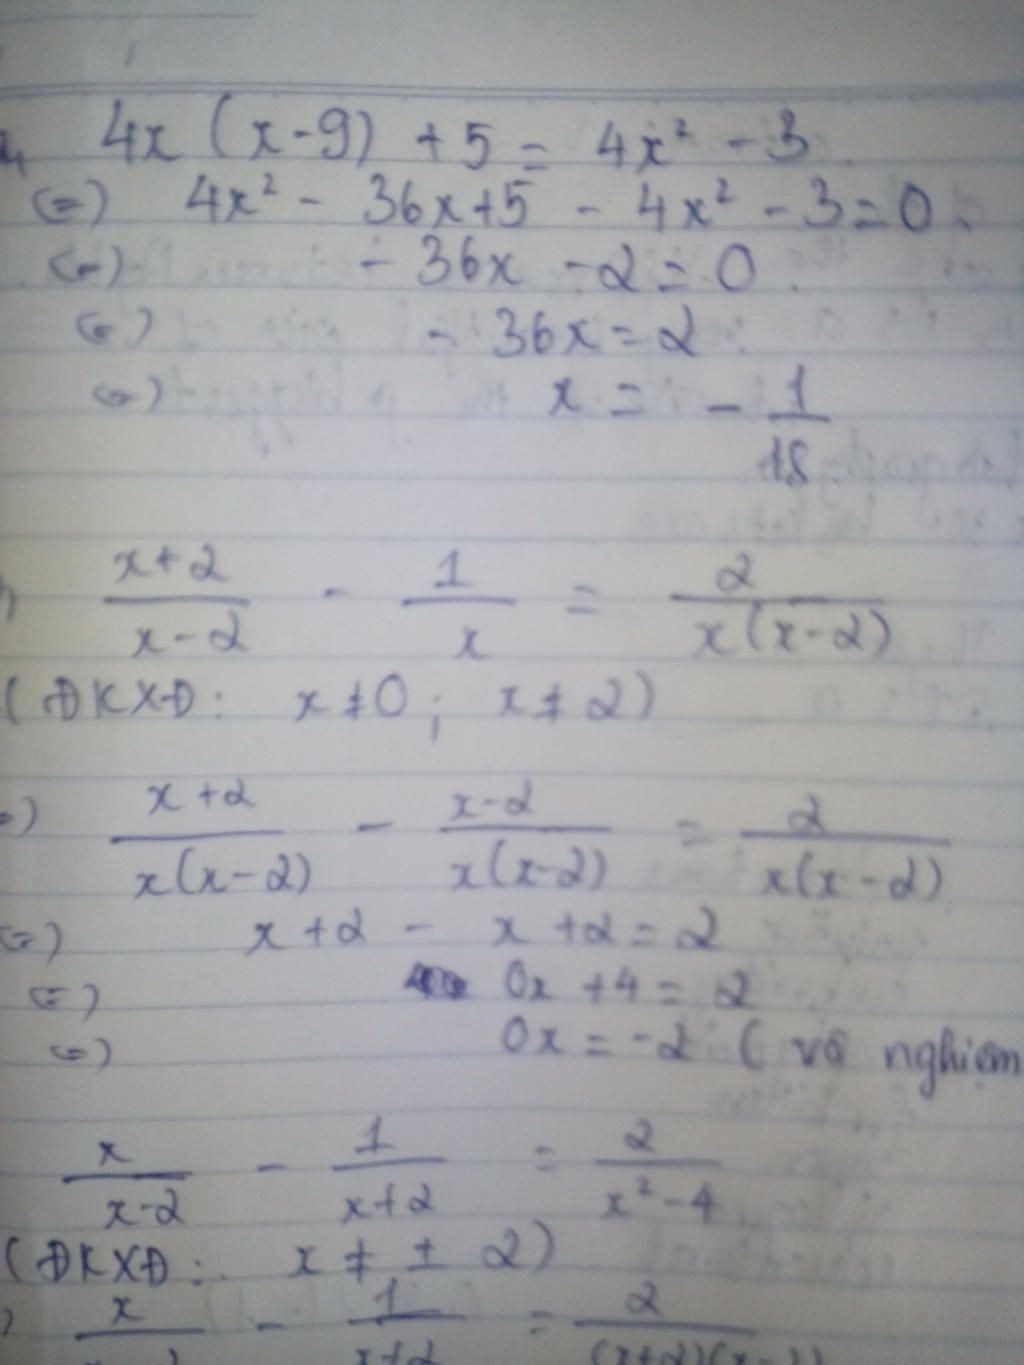 4x (x-9) + 5 = 4x² - 3
(=) 4x² - 36x+5 - 4x² - 3 = 0.
(=) - 36x - 2 = 0.
(=) - 36x = 2
(=) x = - 1/18
(x+2)/(x-2) - 1/x = 2/(x(x-2))
(ĐKXĐ: x≠0; x≠2)
=) (x+2)/(x(x-2)) - (x-2)/(x(x-2)) = 2/(x(x-2))
(=) x+2 - x+2 = 2
(=) 0x + 4 = 2
(=) 0x = -2 ( vô nghiệm
x/(x-2) - 1/(x+2) = 2/(x²-4)
(ĐKXĐ: x ≠ ± 2)
) x - 1/(x+2) = 2